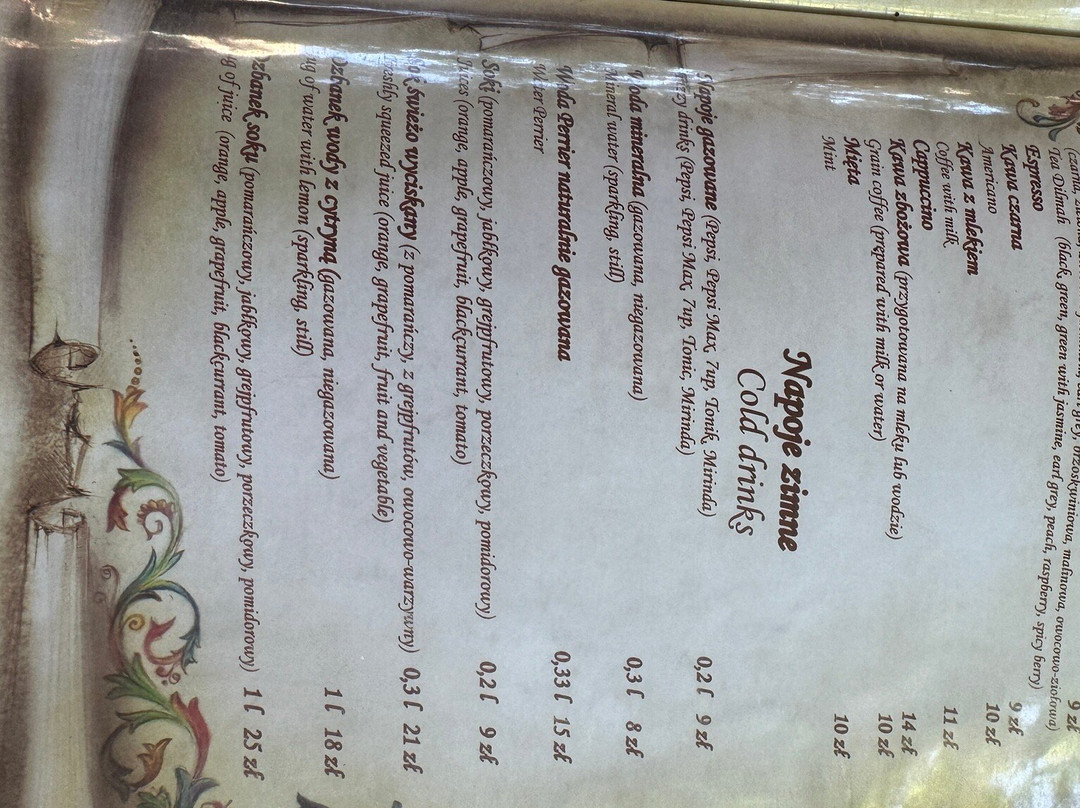 (czarna, brzoskwiniowa, malinowa, owocowo-ziołowa) 9 zł
Tea Dilmah (black, green, green with jasmine, earl grey, peach, raspberry, spicy berry)
Espresso 9 zł
Kawa czarna 10 zł
Americano
Kawa z mlekiem 11 zł
Coffee with milk
Cappuccino 14 zł
Kawa zbożowa (przygotowana na mleku lub wodzie) 10 zł
Grain coffee (prepared with milk or water)
Mięta 10 zł
Mint
Napoje zimne
Cold drinks
Napoje gazowane (Pepsi, Pepsi Max, 7up, Tonik, Mirinda) 0,2 l 9 zł
drinks (Pepsi, Pepsi Max, 7up, Tonic, Mirinda)
Woda mineralna (gazowana, niegazowana) 0,3 l 8 zł
Mineral water (sparkling, still)
Woda Perrier naturalnie gazowana 0,33 l 15 zł
Water Perrier
Soki (pomarańczowy, jabłkowy, grejpfrutowy, porzeczkowy, pomidorowy) 0,2 l 9 zł
Juices (orange, apple, grapefruit, blackcurrant, tomato)
Sok świeżo wyciskany (z pomarańczy, z grejpfrutów, owocowo-warzywny) 0,3 l 21 zł
Freshly squeezed juice (orange, grapefruit, fruit and vegetable)
Dzbanek wody z cytryną (gazowana, niegazowana) 1 l 18 zł
of water with lemon (sparkling, still)
Dzbanek soku (pomarańczowy, jabłkowy, grejpfrutowy, porzeczkowy, pomidorowy) 1 l 25 zł
of juice (orange, apple, grapefruit, blackcurrant, tomato)